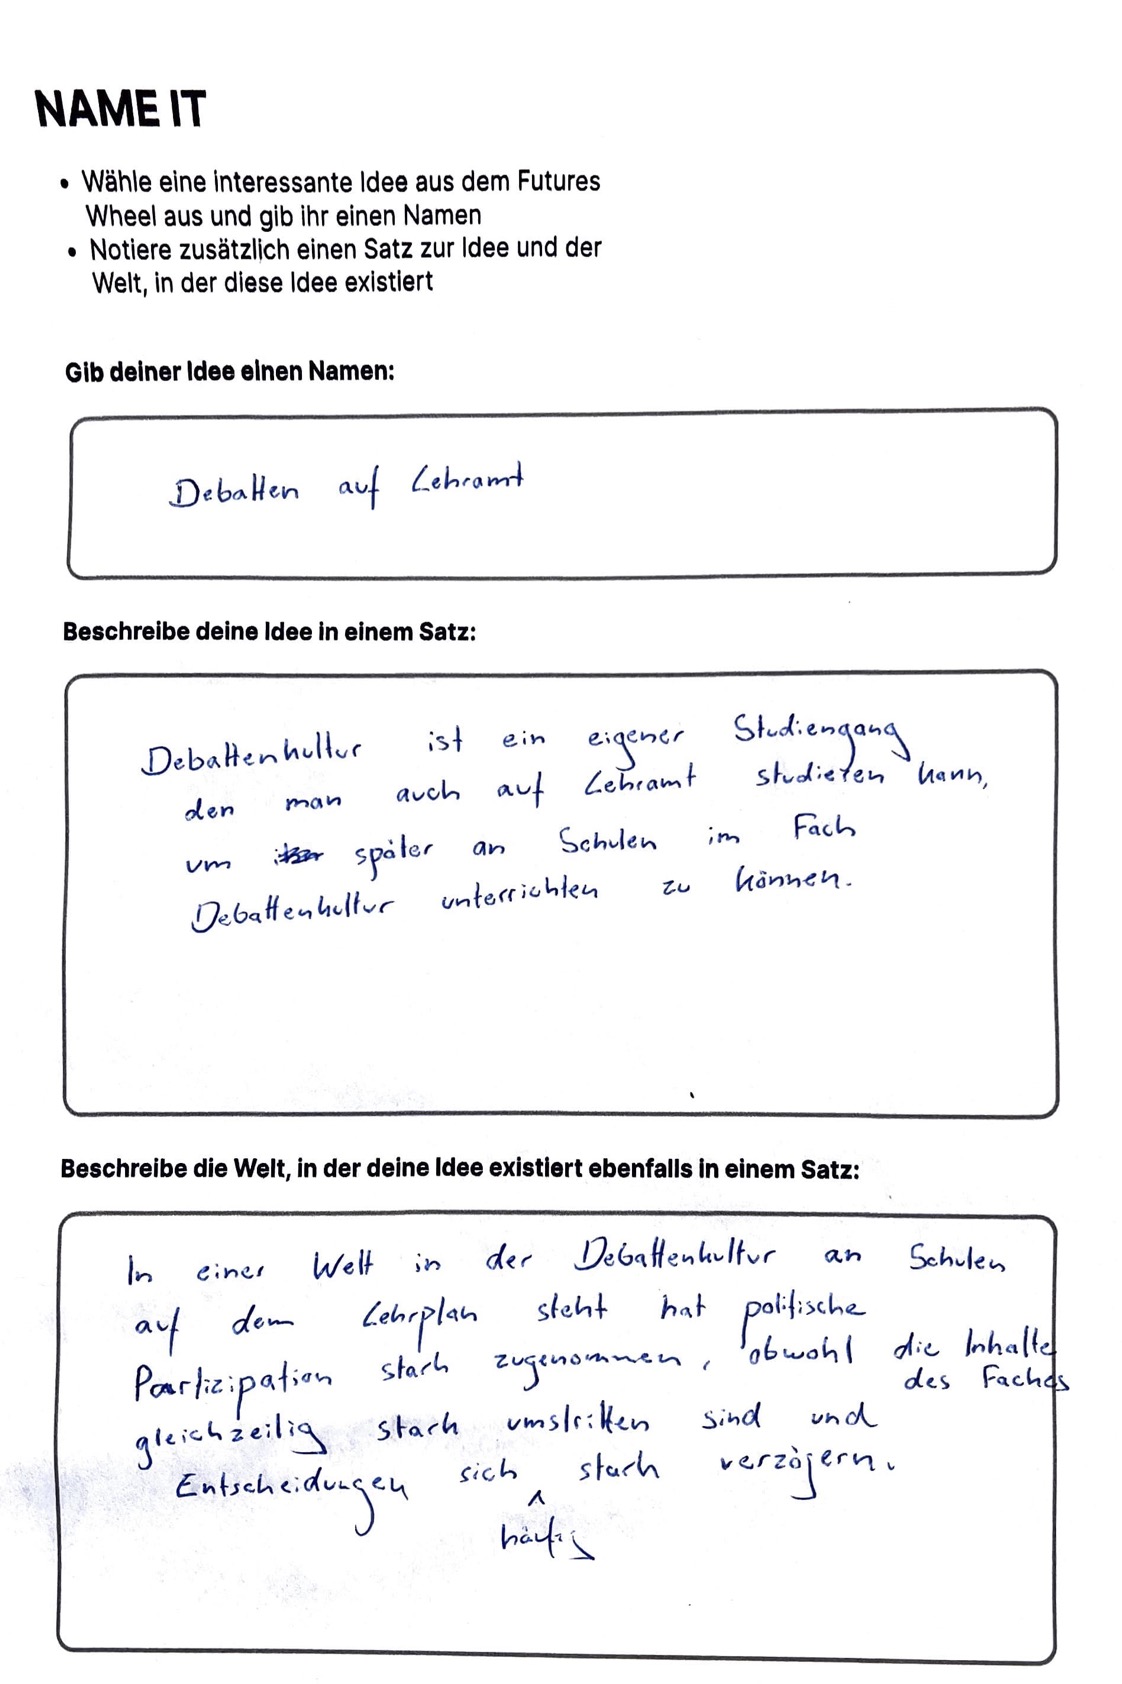 NAME IT
• Wähle eine interessante Idee aus dem Futures
Wheel aus und gib ihr einen Namen
• Notiere zusätzlich einen Satz zur Idee und der
Welt, in der diese Idee existiert
Gib deiner Idee einen Namen:
Debatten auf Lehramt
Beschreibe deine Idee in einem Satz:
Debattenkultur ist ein eigener Studiengang
den man auch auf Lehramt studieren kann,
um später an Schulen im Fach
Debattenkultur unterrichten zu können.
Beschreibe die Welt, in der deine Idee existiert ebenfalls in einem Satz:
In einer Welt in der Debattenkultur an Schulen
auf dem Lehrplan steht hat politische
Partizipation stark zugenommen, obwohl die Inhalte
des Faches
gleichzeitig stark umstritten sind und
Entscheidungen sich stark verzögern.
^
häufig